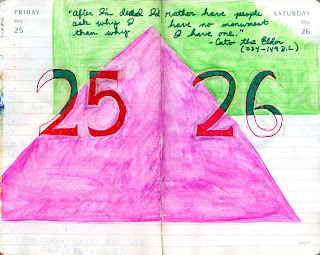 FRIDAY
May
25
SATURDAY
May
26
"After I'm dead I'd rather have people
ask why I have no monument
than why I have one."
Cato the Elder
(234-149 B.C.)
25 26